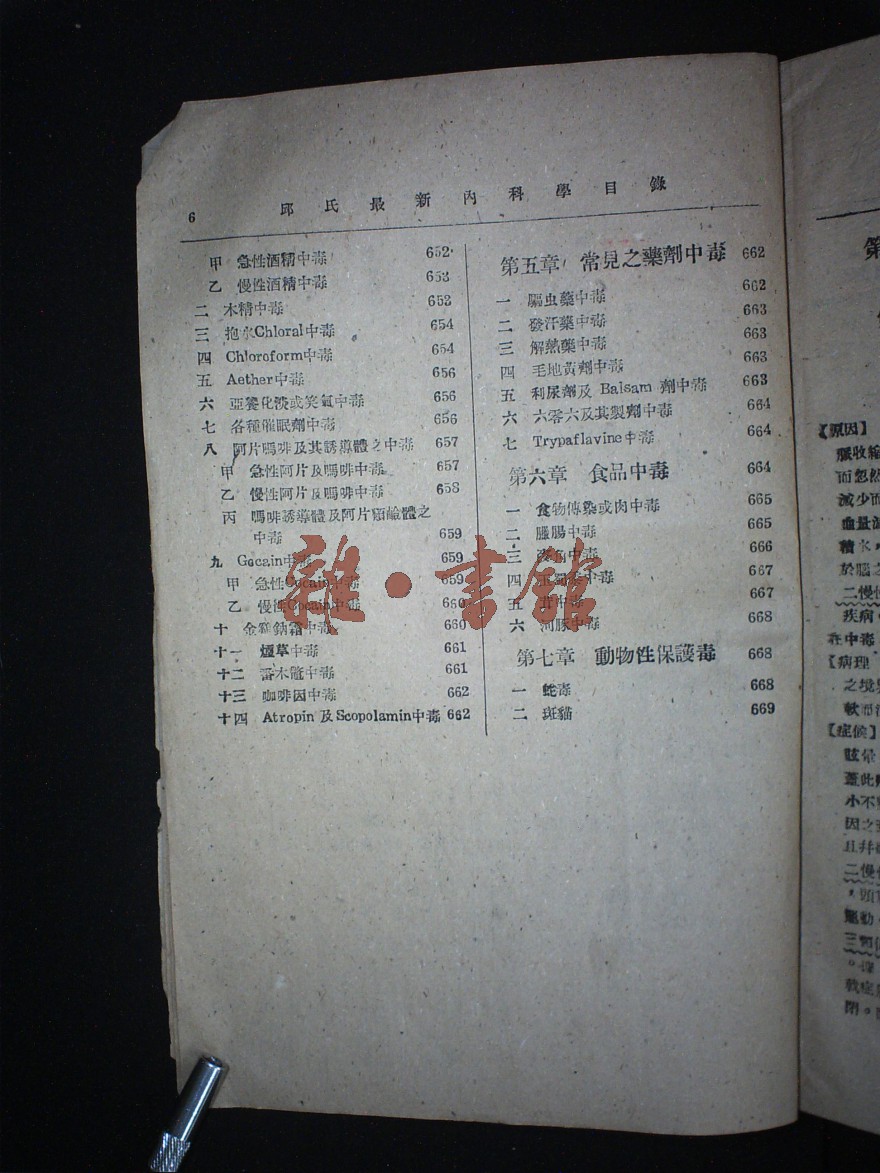 6
邱氏最新內科學目錄
甲 急性酒精中毒 652
乙 慢性酒精中毒 653
二 木精中毒 653
三 抱水Chloral中毒 654
四 Chloroform中毒 654
五 Aether中毒 656
六 亞養化淡或笑氣中毒 656
七 各種催眠劑中毒 656
八 阿片嗎啡及其誘導體之中毒 657
甲 急性阿片及嗎啡中毒 657
乙 慢性阿片及嗎啡中毒 658
丙 嗎啡誘導體及阿片類鹼體之
中毒 659
九 Cocain中毒 659
甲 急性Cocain中毒 659
乙 慢性Cocain中毒 660
十 金雞鈉霜中毒 660
十一 煙草中毒 661
十二 番木鼈中毒 661
十三 咖啡因中毒 662
十四 Atropin及Scopolamin中毒 662
第五章 常見之藥劑中毒 662
一 驅虫藥中毒 662
二 發汗藥中毒 663
三 解熱藥中毒 663
四 毛地黃劑中毒 663
五 利尿劑及 Balsam 劑中毒 663
六 六零六及其製劑中毒 664
七 Trypaflavine中毒 664
第六章 食品中毒 664
一 食物傳染或肉中毒 665
二 臘腸中毒 665
三 中毒 666
四 中毒 667
五 中毒 667
六 河豚中毒 668
第七章 動物性保護毒 668
一 蛇毒 668
二 斑貓 669
雜·書館
第
【原因】
脈收縮
而忽然
減少而
血量減
積水
於腦之
二慢性
疾病
在中毒
【病理
之境界
軟而
【症候】
眩暈
蓋此
小不
因之
且并
二慢性
頭
軀動
三
戟症
閉。